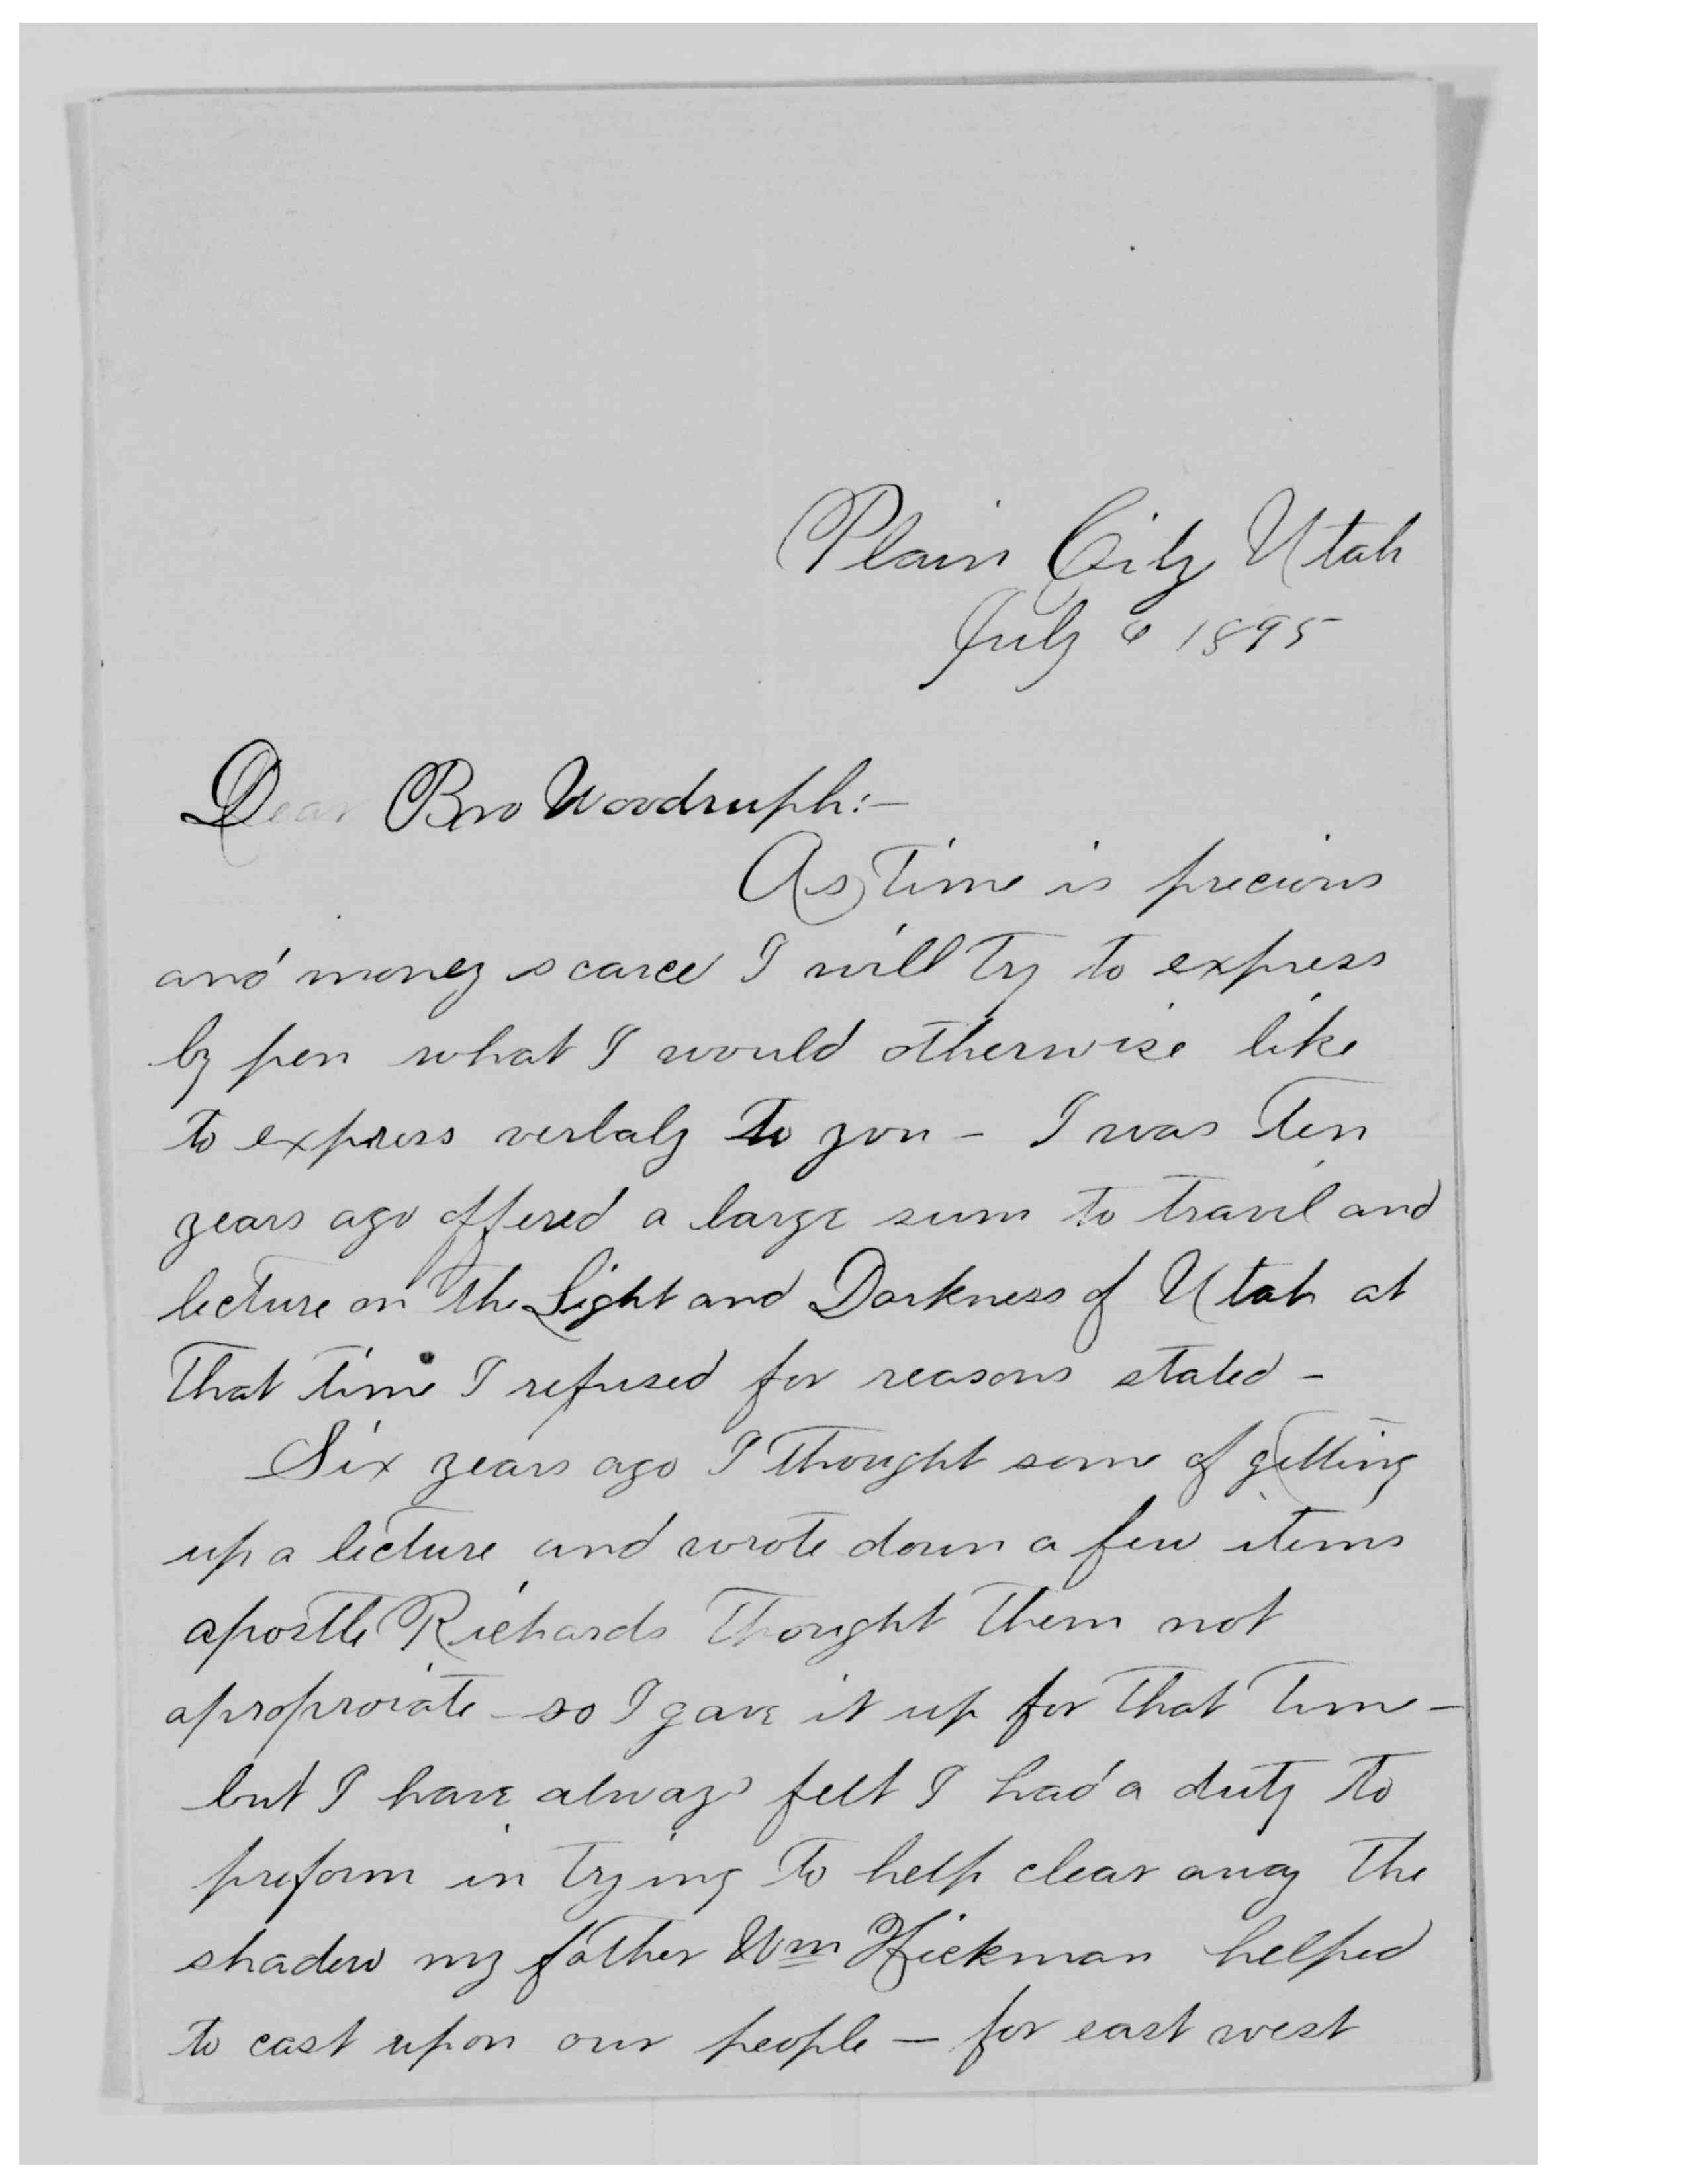 Plain City Utah
July 6 1895
Dear Bro Woodruph:—
As time is precious
and money scarce I will try to express
by pen what I would otherwise like
to express verbaly to you – I was ten
years ago offered a large sum to travil and
lecture on the Light and Darkness of Utah at
that time I refused for reasons stated –
Six years ago I thought some of getting
up a lecture and wrote down a few items
apostle Richards thought them not
aproproiate – so I gave it up for that time –
but I have always felt I had a duty to
preform in trying to help clear away the
shadow my father Wm Hickman helped
to cast upon our people – for east west